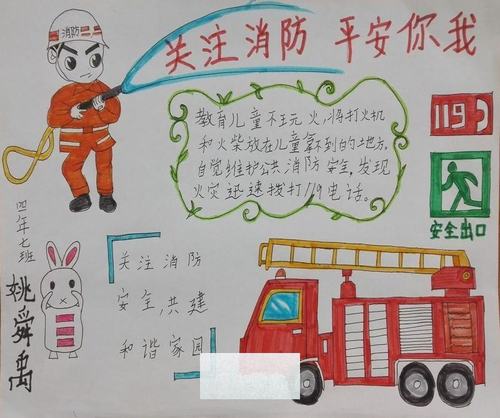 消防
关注消防 平安你我
教育儿童不玩火,将打火机
和火柴放在儿童拿不到的地方,
自觉维护公共消防安全,发现
火灾迅速拨打119电话。
119
安全出口
四年七班
姚舜禹
关注消防
安全共建
和谐家园